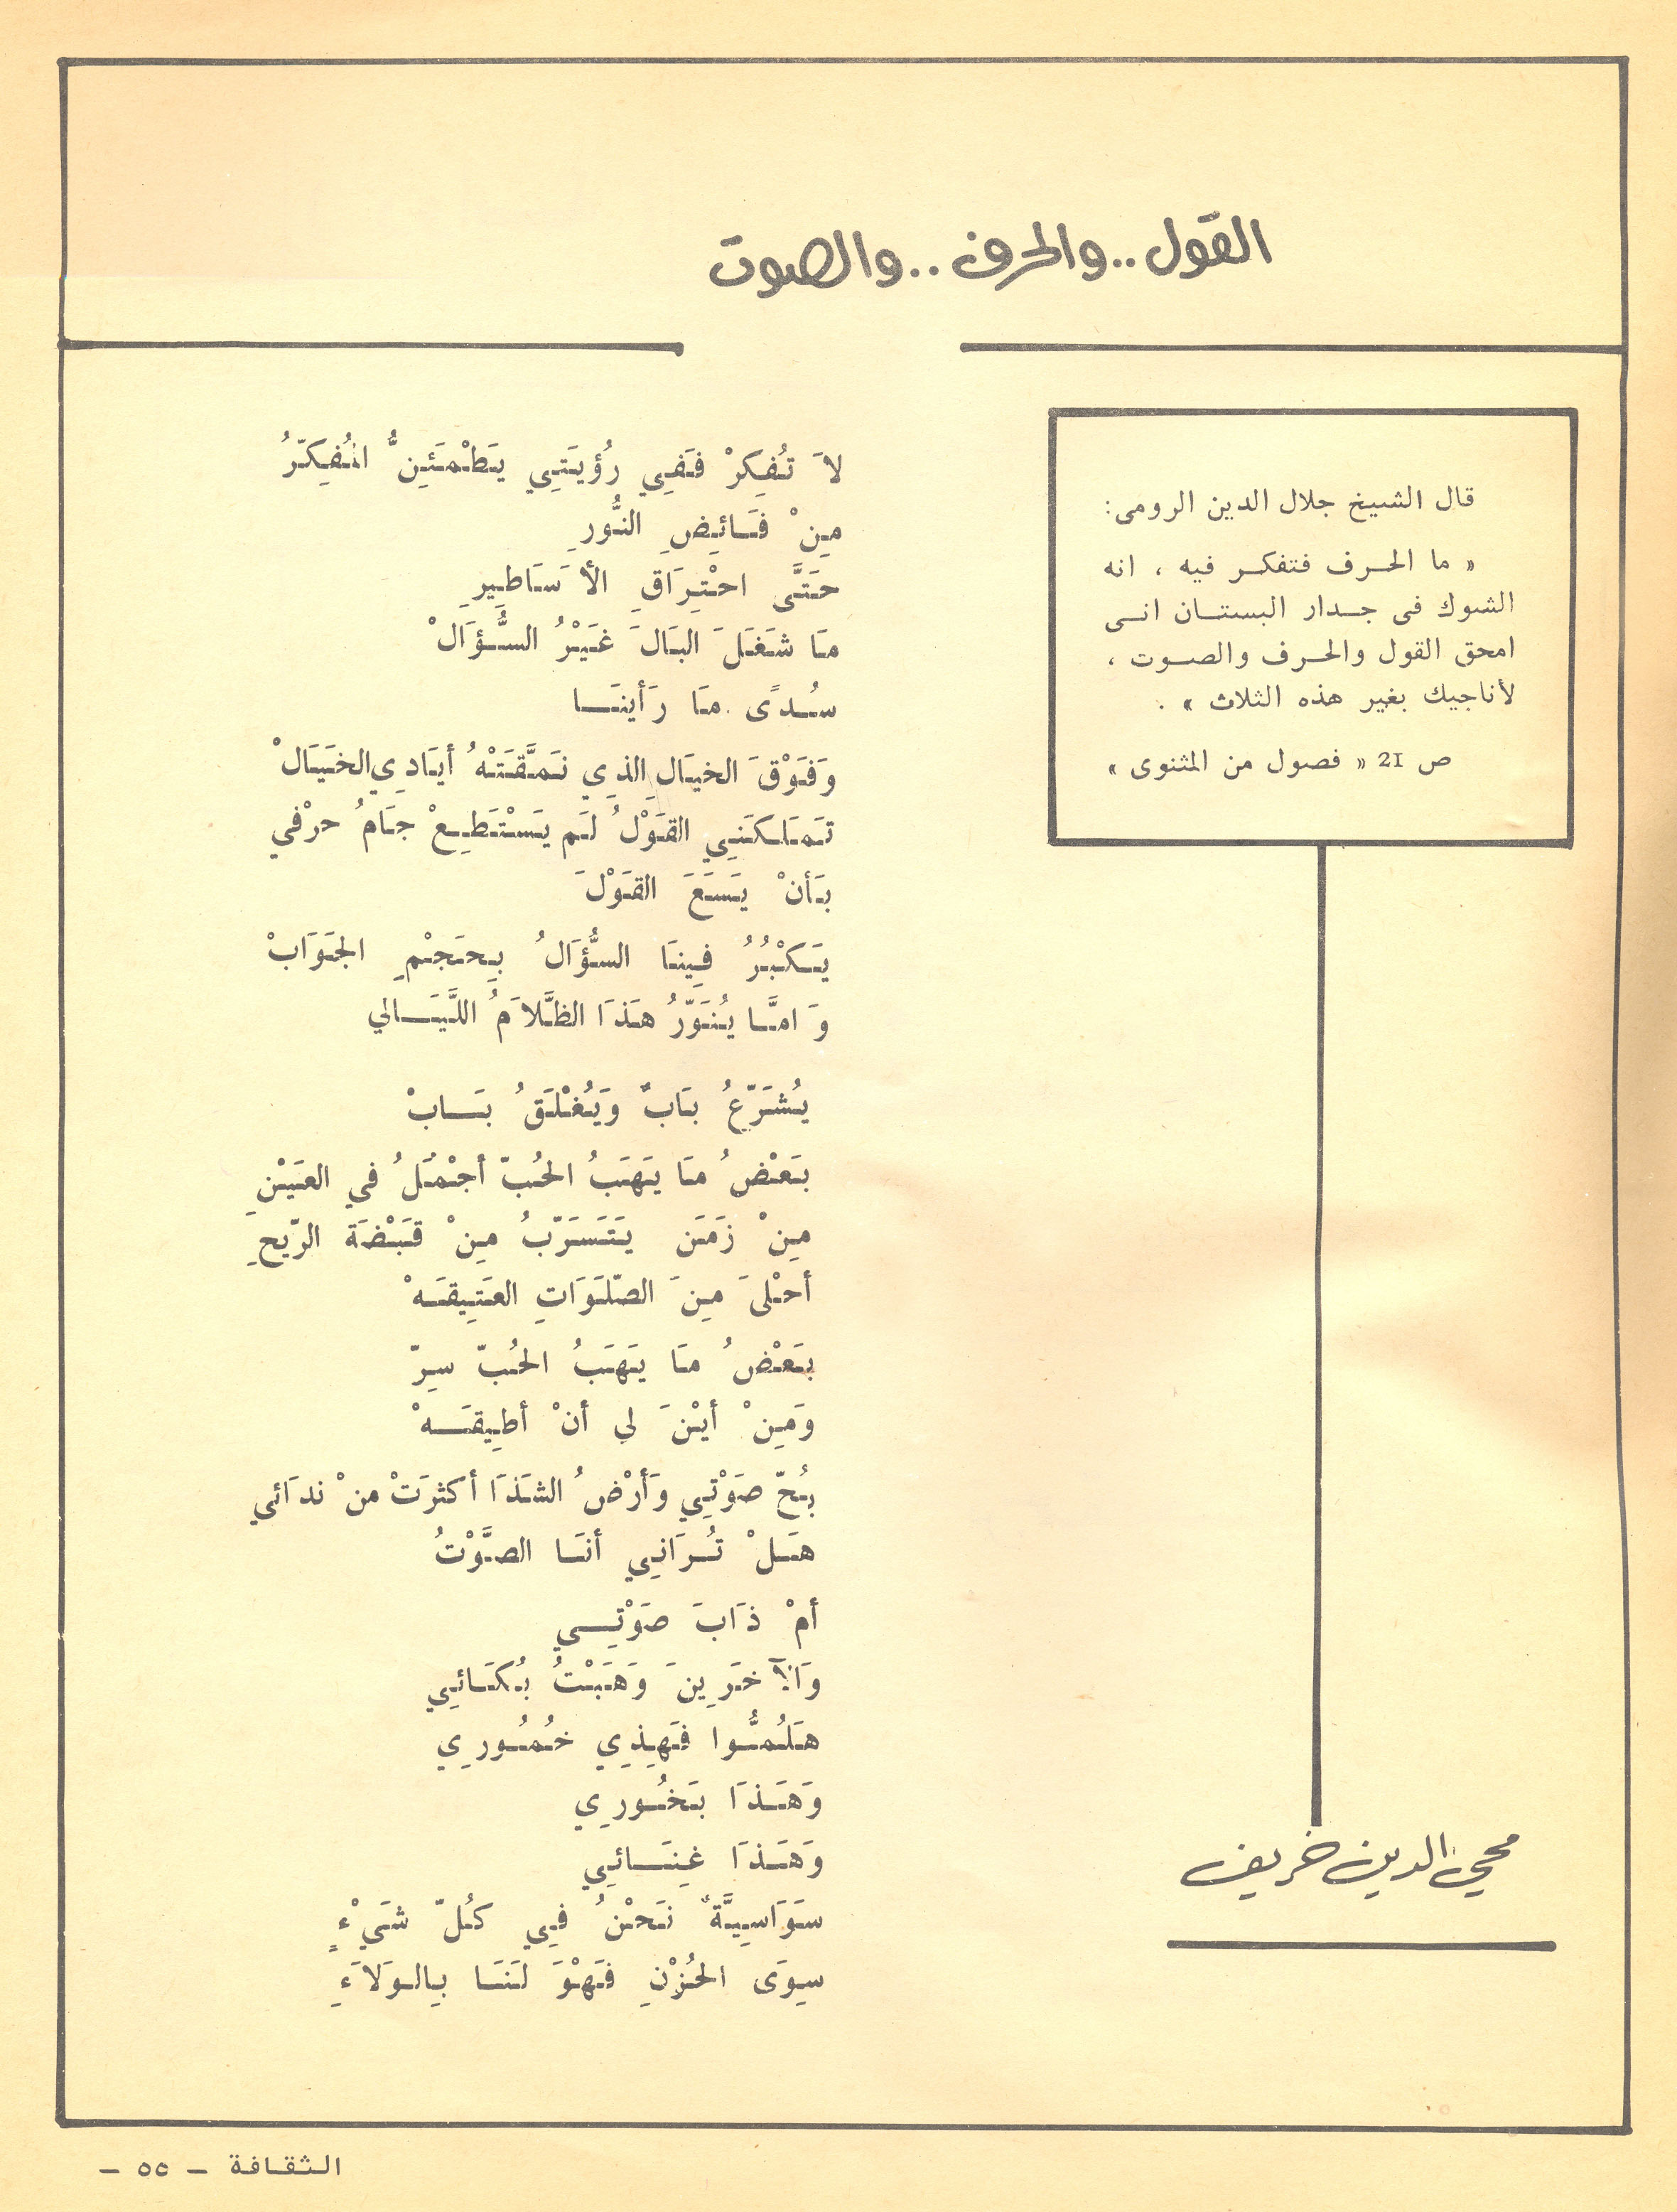 القول .. والحرف .. والصوت
قال الشيخ جلال الدين الرومى :
« ما الحرف فتفكر فيه ، انه
الشوك فى جدار البستان انى
امحق القول والحرف والصوت ،
لأناجيك بغير هذه الثلاث » .
ص 21 « فصول من المثنوى »
محي الدين خريف
لاَ تُفِكرْ فَفِي رُؤيَتِي يَطْمَئِنُّ المُفِكّرُ
مِنْ فَائِضِ النُّورِ
حَتَّى احْتِرَاقِ الأَسَاطِيرِ
مَا شَغَلَ البَالَ غَيْرُ السُّؤَالْ
سُدًى مَا رَأينَا
وَفَوْقَ الخيَالِ الذِي نَمَّقَتْهُ أيَادِي الخَيَالْ
تَمَلكَنِي القَوْلُ لَم يَسْتَطِعْ جَامُ حرْفي
بَأنْ يَسَعَ القَوْلَ
يَكْبُرُ فِينَا السُّؤَالُ بِحَجْمِ الجَوَابْ
وَ امَّا يُنَوّرُ هَذَا الظَّلاَمُ اللَّيَالي
يُشَرّعُ بَابٌ وَيُغْلَقُ بَابْ
بَعْضُ مَا يَهَبُ الحُبّ أجْمَلُ في العَيْنِ
مِنْ زَمَن يَتَسَرّبُ مِنْ قَبْضَة الرّيحِ
أحْلىَ مِنَ الصّلَوَاتِ العَتِيقَهْ
بَعْضُ مَا يَهَبُ الحُبّ سِرّ
وَمِنْ أيْنَ لي أنْ أطِيقَهْ
بُحّ صَوْتِي وَأرْضُ الشَذَا أكثرَتْ منْ ندَائي
هَلْ تُرَانِي أنَا الصَّوْتُ
أمْ ذَابَ صَوْتِي
وَالآخَرِينَ وَهَبْتُ بُكَائِي
هَلُمُّوا فَهِذِي خُمُورِي
وَهَذَا بَخُورِي
وَهَذَا غِنَائِي
سَوَاسِيَّةٌ نَحْنُ فِي كُلّ شَيْءٍ
سِوَى الحُزْنِ فَهْوَ لَنَا بِالوَلاَءِ
الثقافة - ٥٥ -